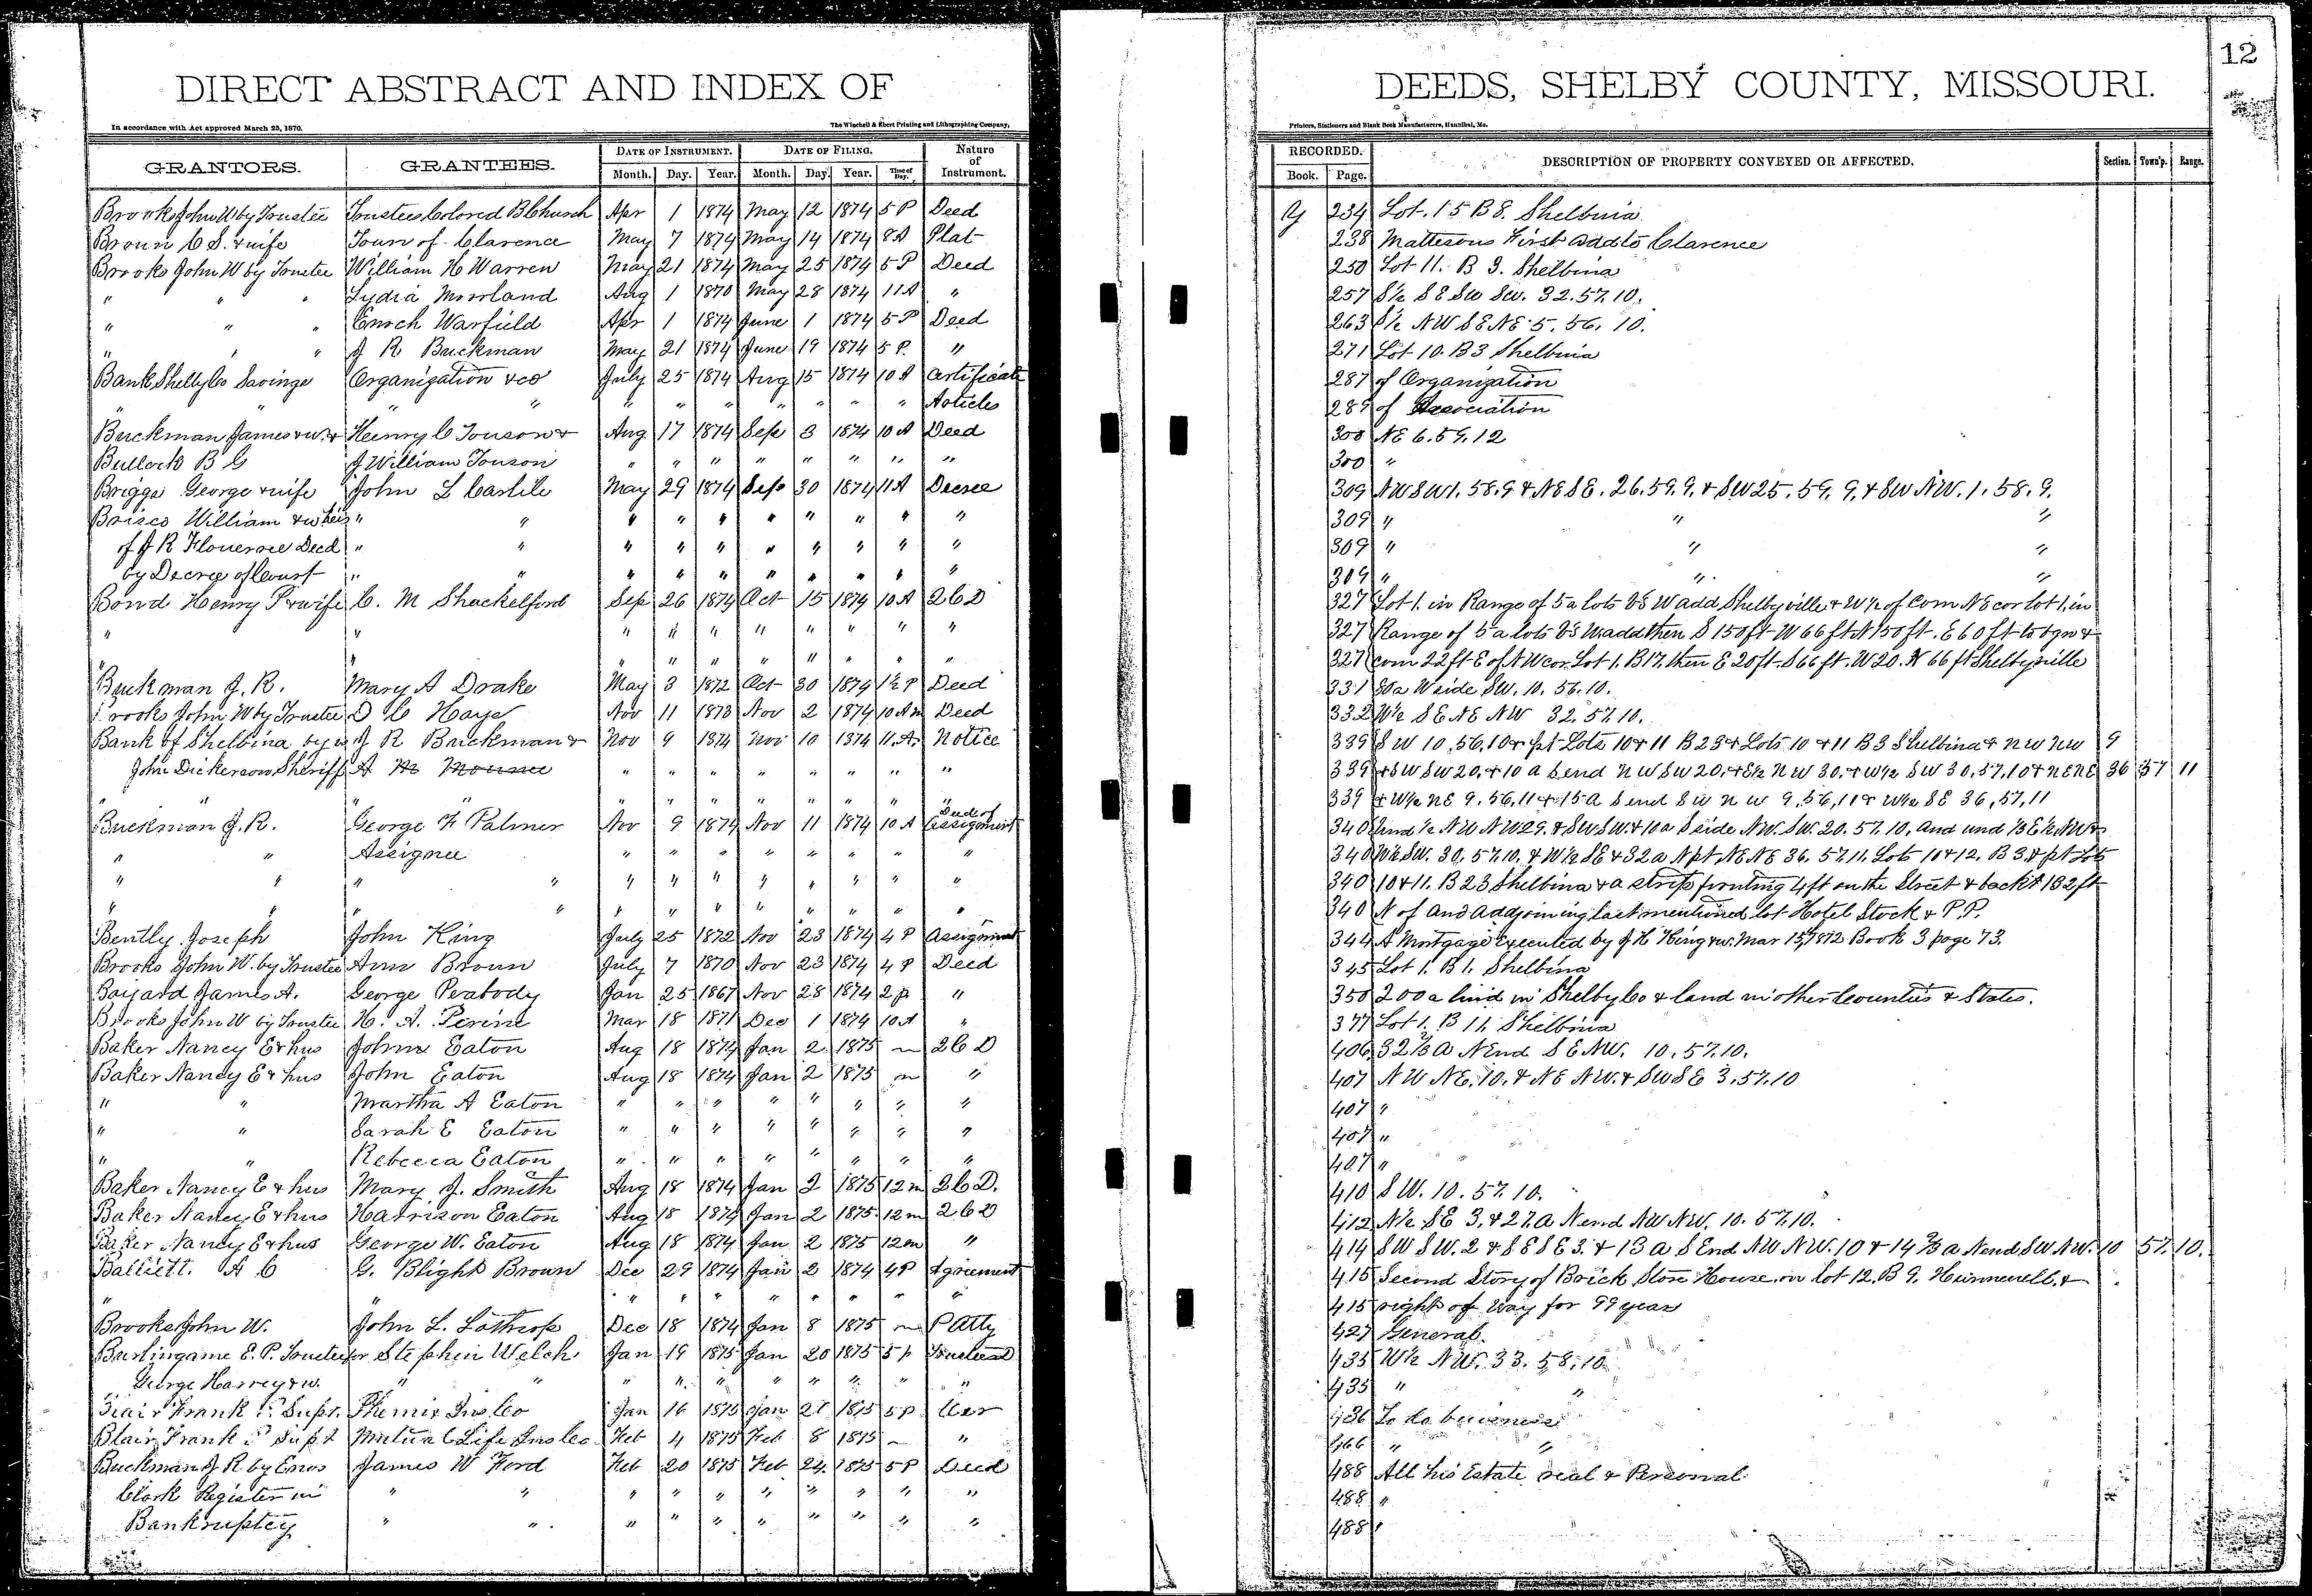 12
DIRECT ABSTRACT AND INDEX OF DEEDS, SHELBY COUNTY, MISSOURI.
In accordance with Act approved March 25, 1870. The Winchell & Ebert Printing and Lithographing Company, Printers, Stationers and Blank Book Manufacturers, Hannibal, Mo.
GRANTORS. GRANTEES. DATE OF INSTRUMENT. DATE OF FILING. Nature of Instrument. RECORDED. DESCRIPTION OF PROPERTY CONVEYED OR AFFECTED. Section. Town'p. Range.
Month. Day. Year. Month. Day. Year. Time of Day. Book. Page.
Brooks John W by Trustee Trustees Colored B Church Apr 1 1874 May 12 1874 5 P Deed Y 234 Lot. 15 B 8. Shelbina
Brown C S. & wife Town of Clarence May 7 1874 May 14 1874 8 A Plat 238 Mattesons First add to Clarence
Brooks John W by Trustee William H Warren May 21 1874 May 25 1874 5 P Deed 250 Lot 11. B 3. Shelbina
" " " Lydia Moorland Aug 1 1870 May 28 1874 11 A " 257 S½ S E SW SW. 32. 57. 10.
" " " Enoch Warfield Apr 1 1874 June 1 1874 5 P Deed 263 S½ NW SE NE 5. 56. 10.
" " " J R Buckman May 21 1874 June 19 1874 5 P. " 271 Lot 10. B 3 Shelbina
Bank Shelby Co Savings Organization &co July 25 1874 Aug 15 1874 10 A Certificate 287 of Organization
" " " " " " " " " " " Articles 289 of Association
Buckman James & w. & Henry C Touson & Aug 17 1874 Sep 3 1874 10 A Deed 300 NE 6. 59. 12
Bullock B G J William Touson " " " " " " " " 300 "
Briggs George & wife John L Carlile May 29 1874 Sep 30 1874 11 A Decree 309 NW SW 1. 58. 9 & NE SE. 26. 59. 9. & SW 25. 59. 9. & SW NW. 1. 58. 9.
Brisco William & w heirs " " " " " " " " " " 309 " " "
of J R Flouerree Decd " " " " " " " " " " 309 " " "
by Decree of Court " " " " " " " " " " 309 " " "
Bond Henry S & wife C. M Shackelford Sep 26 1874 Oct 15 1874 10 A 2 C D 327 Lot 1. in Range of 5 a lots S W add Shelbyville & W½ of Com NE cor lot 1. in
" " " " " " " " " " 327 Range of 5 a lots S W. add then S 150 ft W 66 ft N 150 ft. E 60 ft to bgn &
" " " " " " " " " 327 com 22 ft E of NW cor. Lot 1. B 17. then E 20 ft. S 66 ft. W 20. N 66 ft Shelbyville
Buckman J. R. Mary A Drake May 3 1872 Oct 30 1874 1½ P Deed 331 30 a W side SW. 10. 56. 10.
Brooks John W by Trustee D C Hayes Nov 11 1873 Nov 2 1874 10 Am Deed 332 W½ SE NE NW 32. 57. 10.
Bank of Shelbina by J R Buckman & Nov 9 1874 Nov 10 1874 11. A. Notice 339 S W 10. 56. 10 & pt Lots 10 & 11 B 23 & Lots 10 & 11 B 3 Shelbina & NW NW 9
John Dickerson, Sheriff A M " " " " " " " " 339 & SW SW 20. & 10 a S end NW SW 20. & E½ NW 30. & W½ SW 30. 57. 10 & NE NE 36 57 11
" " " " " " " " " " 339 & W½ NE 9. 56. 11 & 15 a S end SW NW 9. 56, 11 & W½ SE 36, 57, 11
Buckman J. R. George F Palmer Nov 9 1874 Nov 11 1874 10 A Deed of Assignment 340 Und ½ NW NW 29. & SW. SW. & 10 a S side NW. SW. 20. 57. 10. and und ⅓ E½ NW &
" " Assignee " " " " " " " " 340 W½ SW. 30. 57. 10. & W½ SE & 32 a N pt NE NE 36. 57. 11. Lots 10 & 12. B 3. & pt Lots
" " " " " " " " " " " " 340 10 & 11. B 23 Shelbina & a strip fronting 4 ft on the Street & back 132 ft
" " " " " " " " " " " " 340 N of and adjoining last mentioned lot Hotel Stock & P. P.
Bently Joseph John King July 25 1872 Nov 23 1874 4 P Assignment 344 A Mortgage executed by J H King & w. Mar 15, 1872 Book 3 page 73.
Brooks John W. by Trustee Ann Brown July 7 1870 Nov 23 1874 4 P Deed 345 Lot 1. B 1. Shelbina
Bayard James A. George Peabody Jan 25 1867 Nov 28 1874 2 p " 350 200 a land in Shelby Co & land in other Counties & States.
Brooks John W by Trustee H. A. Perine Mar 18 1871 Dec 1 1874 10 A " 377 Lot 1. B 11. Shelbina
Baker Nancy E & hus John Eaton Aug 18 1874 Jan 2 1875 m 2 C D 406 32⅔ a N End SE NW. 10. 57. 10.
Baker Nancy E & hus John Eaton Aug 18 1874 Jan 2 1875 m " 407 NW NE. 10. & NE NW. & SW SE 3. 57. 10
" " Martha A Eaton " " " " " " " " 407 "
" " Sarah E Eaton " " " " " " " " 407 "
" " Rebecca Eaton " " " " " " " " 407 "
Baker Nancy E & hus Mary J. Smith Aug 18 1874 Jan 2 1875 12 m 2 C D. 410 S W. 10. 57. 10.
Baker Nancy E & hus Harrison Eaton Aug 18 1874 Jan 2 1875 12 m 2 C D 412 N½ SE 3. & 27. a N end NW NW. 10. 57. 10.
Baker Nancy E & hus George W. Eaton Aug 18 1874 Jan 2 1875 12 m " 414 SW SW. 2 & SE SE 3. & 13 a S End NW NW. 10 & 14⅔ a N end SW NW. 10 57. 10.
Balliett. A C G. Blight Brown Dec 29 1874 Jan 2 1874 4 P Agreement 415 Second Story of Brick Store House, on lot 12. B 9. Hunnewell. &
" " " " " " " " " " 415 right of Way for 99 years
Brooks John W. John L. Lathrop Dec 18 1874 Jan 8 1875 m P Atty 427 General.
Burlingame E. P. Trustee for Stephen Welch Jan 19 1875 Jan 20 1875 5 p Trust Deed 435 W½ NW. 33. 58. 10
George Harvey & w. " " " " " " " " " " 435 " "
Blair Frank P. Supt. Phenix Ins Co Jan 16 1875 Jan 21 1875 5 P. Cer 436 To do business
Blair Frank P Supt Mutual Life Ins Co. Feb 4 1875 Feb 8 1875 " 466 " "
Buckman J R by Enos James W Ford Feb 20 1875 Feb 24. 1875 5 P Deed 488 All his Estate real & Personal.
Clark Register in " " " " " " " " " " 488 "
Bankruptcy " " " " " " " " " " 488 "